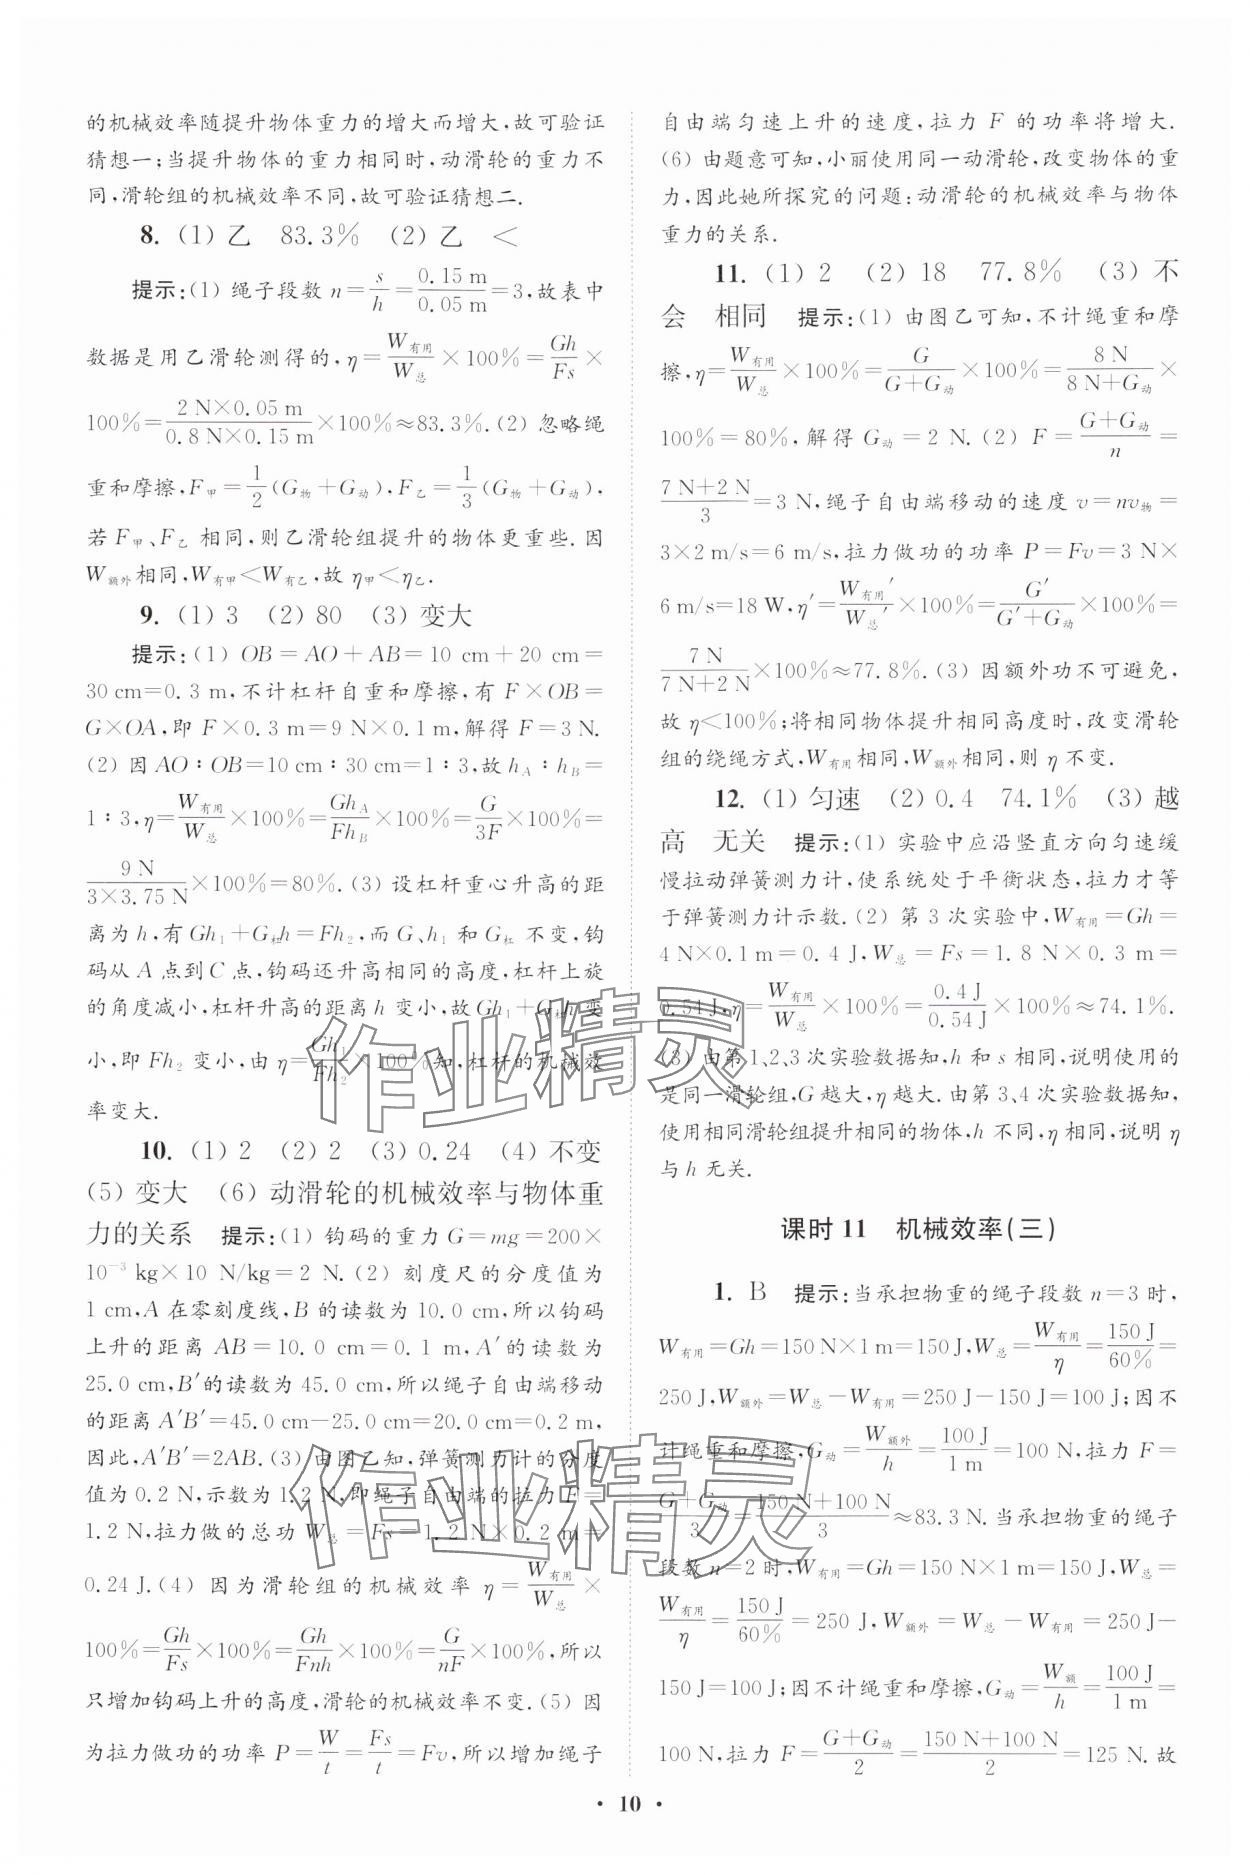 的机械效率随提升物体重力的增大而增大,故可验证
猜想一;当提升物体的重力相同时,动滑轮的重力不
同,滑轮组的机械效率不同,故可验证猜想二.
8. (1) 乙 83.3% (2) 乙 <
提示:(1) 绳子段数 n=s/h=0.15 m/0.05 m=3,故表中
数据是用乙滑轮测得的,η=W有用/W总×100%=Gh/Fs×
100%=2 N×0.05 m/0.8 N×0.15 m×100%≈83.3%.(2) 忽略绳
重和摩擦,F甲=1/2(G物+G动),F乙=1/3(G物+G动),
若 F甲、F乙 相同,则乙滑轮组提升的物体更重些. 因
W额外相同,W有甲<W有乙,故 η甲<η乙.
9. (1) 3 (2) 80 (3) 变大
提示:(1) OB=AO+AB=10 cm+20 cm=
30 cm=0.3 m,不计杠杆自重和摩擦,有 F×OB=
G×OA,即 F×0.3 m=9 N×0.1 m,解得 F=3 N.
(2) 因 AO∶OB=10 cm∶30 cm=1∶3,故 hA∶hB=
1∶3,η=W有用/W总×100%=GhA/FhB×100%=G/3F×100%=
9 N/3×3.75 N×100%=80%.(3) 设杠杆重心升高的距
离为 h,有 Gh1+G杠h=Fh2,而 G、h1 和 G杠 不变,钩
码从 A 点到 C 点,钩码还升高相同的高度,杠杆上旋
的角度减小,杠杆升高的距离 h 变小,故 Gh1+G杠h 变
小,即 Fh2 变小,由 η=Gh1/Fh2×100%知,杠杆的机械效
率变大.
10. (1) 2 (2) 2 (3) 0.24 (4) 不变
(5) 变大 (6) 动滑轮的机械效率与物体重
力的关系 提示:(1) 钩码的重力 G=mg=200×
10⁻³ kg×10 N/kg=2 N.(2) 刻度尺的分度值为
1 cm,A 在零刻度线,B 的读数为 10.0 cm,所以钩码
上升的距离 AB=10.0 cm=0.1 m,A′的读数为
25.0 cm,B′的读数为 45.0 cm,所以绳子自由端移动
的距离 A′B′=45.0 cm-25.0 cm=20.0 cm=0.2 m,
因此,A′B′=2AB.(3) 由图乙知,弹簧测力计的分度
值为 0.2 N,示数为 1.2 N,即绳子自由端的拉力 F=
1.2 N,拉力做的总功 W总=Fs=1.2 N×0.2 m=
0.24 J.(4) 因为滑轮组的机械效率 η=W有用/W总×
100%=Gh/Fs×100%=Gh/Fnh×100%=G/nF×100%,所以
只增加钩码上升的高度,滑轮的机械效率不变.(5) 因
为拉力做功的功率 P=W/t=Fs/t=Fv,所以增加绳子
自由端匀速上升的速度,拉力 F 的功率将增大.
(6) 由题意可知,小丽使用同一动滑轮,改变物体的重
力,因此她所探究的问题:动滑轮的机械效率与物体
重力的关系.
11. (1) 2 (2) 18 77.8% (3) 不
会 相同 提示:(1) 由图乙可知,不计绳重和摩
擦,η=W有用/W总×100%=G/G+G动×100%=8 N/8 N+G动×
100%=80%,解得 G动=2 N.(2) F=G+G动/n=
7 N+2 N/3=3 N,绳子自由端移动的速度 v=nv物=
3×2 m/s=6 m/s,拉力做功的功率 P=Fv=3 N×
6 m/s=18 W,η′=W有用′/W总′×100%=G′/G′+G动×100%=
7 N/7 N+2 N×100%≈77.8%.(3) 因额外功不可避免,
故 η<100%;将相同物体提升相同高度时,改变滑轮
组的绕绳方式,W有用相同,W额外相同,则 η 不变.
12. (1) 匀速 (2) 0.4 74.1% (3) 越
高 无关 提示:(1) 实验中应沿竖直方向匀速缓
慢拉动弹簧测力计,使系统处于平衡状态,拉力才等
于弹簧测力计示数.(2) 第 3 次实验中,W有用=Gh=
4 N×0.1 m=0.4 J,W总=Fs=1.8 N×0.3 m=
0.54 J,η=W有用/W总×100%=0.4 J/0.54 J×100%≈74.1%.
(3) 由第 1、2、3 次实验数据知,h 和 s 相同,说明使用的
是同一滑轮组,G 越大,η 越大. 由第 3、4 次实验数据知,
使用相同滑轮组提升相同的物体,h 不同,η 相同,说明 η
与 h 无关.
课时 11 机械效率(三)
1. B 提示:当承担物重的绳子段数 n=3 时,
W有用=Gh=150 N×1 m=150 J,W总=W有用/η=150 J/60%=
250 J,W额外=W总-W有用=250 J-150 J=100 J;因不
计绳重和摩擦,G动=W额外/h=100 J/1 m=100 N,拉力 F=
G+G动/3=150 N+100 N/3≈83.3 N. 当承担物重的绳子
段数 n=2 时,W有用=Gh=150 N×1 m=150 J,W总=
W有用/η=150 J/60%=250 J,W额外=W总-W有用=250 J-
150 J=100 J;因不计绳重和摩擦,G动=W额/h=100 J/1 m=
100 N,拉力 F=G+G动/2=150 N+100 N/2=125 N. 故
• 10 •
作业精灵
作业精灵